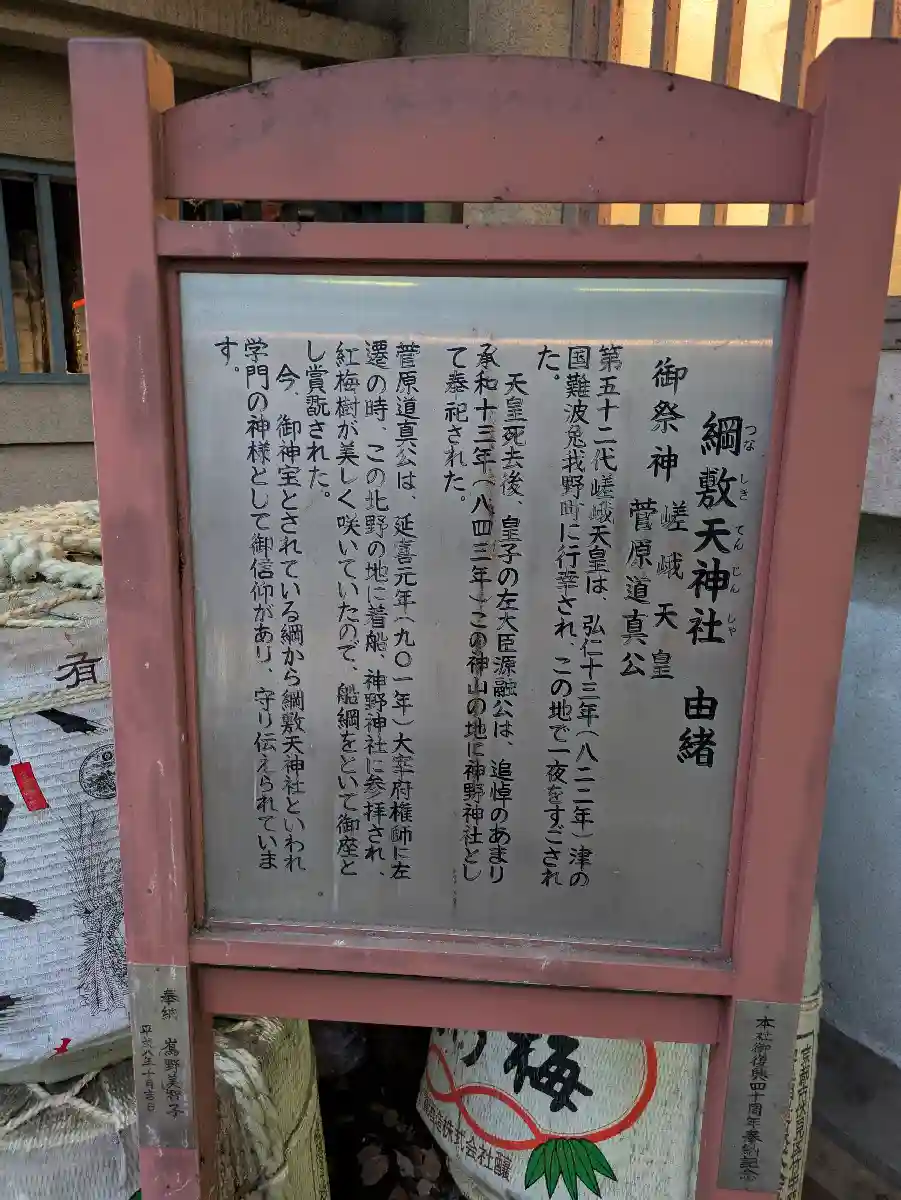 綱敷天神社　由緒
つな しき てん じん しゃ
御祭神　嵯峨天皇
菅原道真公
第五十二代嵯峨天皇は、弘仁十三年(八二二年)津の
国難波兎我野町に行幸され、この地で一夜をすごされ
た。
天皇死去後、皇子の左大臣源融公は、追悼のあまり
承和十三年(八四三年)この神山の地に神野神社とし
て奉祀された。
菅原道真公は、延喜元年(九〇一年)大宰府権師に左
遷の時、この北野の地に着船、神野神社に参拝され、
紅梅樹が美しく咲いていたので、船綱をといて御座と
し賞翫された。
今、御神宝とされている綱から綱敷天神社といわれ
学門の神様として御信仰があり、守り伝えられていま
す。
本社御復興四十周年奉納記念
奉納　嵩野美智子
平成八年十月吉日
有
梅
株式会社醸